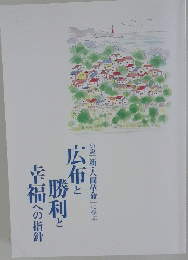 小説「新・人間革命」に学ぶ
広布と
勝利と
幸福への指針